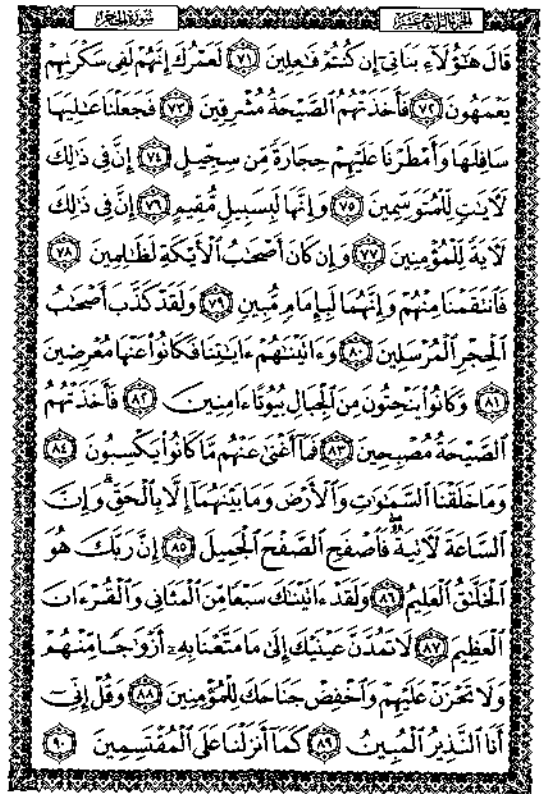 سُورَةُ الْحِجْرِ
الجزء الرابع عشر
قَالَ هَٰٓؤُلَآءِ بَنَاتِىٓ إِن كُنتُمْ فَٰعِلِينَ ٧١ لَعَمْرُكَ إِنَّهُمْ لَفِى سَكْرَتِهِمْ
يَعْمَهُونَ ٧٢ فَأَخَذَتْهُمُ ٱلصَّيْحَةُ مُشْرِقِينَ ٧٣ فَجَعَلْنَا عَٰلِيَهَا
سَافِلَهَا وَأَمْطَرْنَا عَلَيْهِمْ حِجَارَةً مِّن سِجِّيلٍ ٧٤ إِنَّ فِى ذَٰلِكَ
لَءَايَٰتٍ لِّلْمُتَوَسِّمِينَ ٧٥ وَإِنَّهَا لَبِسَبِيلٍ مُّقِيمٍ ٧٦ إِنَّ فِى ذَٰلِكَ
لَءَايَةً لِّلْمُؤْمِنِينَ ٧٧ وَإِن كَانَ أَصْحَٰبُ ٱلْأَيْكَةِ لَظَٰلِمِينَ ٧٨
فَٱنتَقَمْنَا مِنْهُمْ وَإِنَّهُمَا لَبِإِمَامٍ مُّبِينٍ ٧٩ وَلَقَدْ كَذَّبَ أَصْحَٰبُ
ٱلْحِجْرِ ٱلْمُرْسَلِينَ ٨٠ وَءَاتَيْنَٰهُمْ ءَايَٰتِنَا فَكَانُوا۟ عَنْهَا مُعْرِضِينَ
٨١ وَكَانُوا۟ يَنْحِتُونَ مِنَ ٱلْجِبَالِ بُيُوتًا ءَامِنِينَ ٨٢ فَأَخَذَتْهُمُ
ٱلصَّيْحَةُ مُصْبِحِينَ ٨٣ فَمَآ أَغْنَىٰ عَنْهُم مَّا كَانُوا۟ يَكْسِبُونَ ٨٤
وَمَا خَلَقْنَا ٱلسَّمَٰوَٰتِ وَٱلْأَرْضَ وَمَا بَيْنَهُمَآ إِلَّا بِٱلْحَقِّ ۗ وَإِنَّ
ٱلسَّاعَةَ لَءَاتِيَةٌ ۖ فَٱصْفَحِ ٱلصَّفْحَ ٱلْجَمِيلَ ٨٥ إِنَّ رَبَّكَ هُوَ
ٱلْخَلَّٰقُ ٱلْعَلِيمُ ٨٦ وَلَقَدْ ءَاتَيْنَٰكَ سَبْعًا مِّنَ ٱلْمَثَانِى وَٱلْقُرْءَانَ
ٱلْعَظِيمَ ٨٧ لَا تَمُدَّنَّ عَيْنَيْكَ إِلَىٰ مَا مَتَّعْنَا بِهِۦٓ أَزْوَٰجًا مِّنْهُمْ
وَلَا تَحْزَنْ عَلَيْهِمْ وَٱخْفِضْ جَنَاحَكَ لِلْمُؤْمِنِينَ ٨٨ وَقُلْ إِنِّىٓ
أَنَا ٱلنَّذِيرُ ٱلْمُبِينُ ٨٩ كَمَآ أَنزَلْنَا عَلَى ٱلْمُقْتَسِمِينَ ٩٠